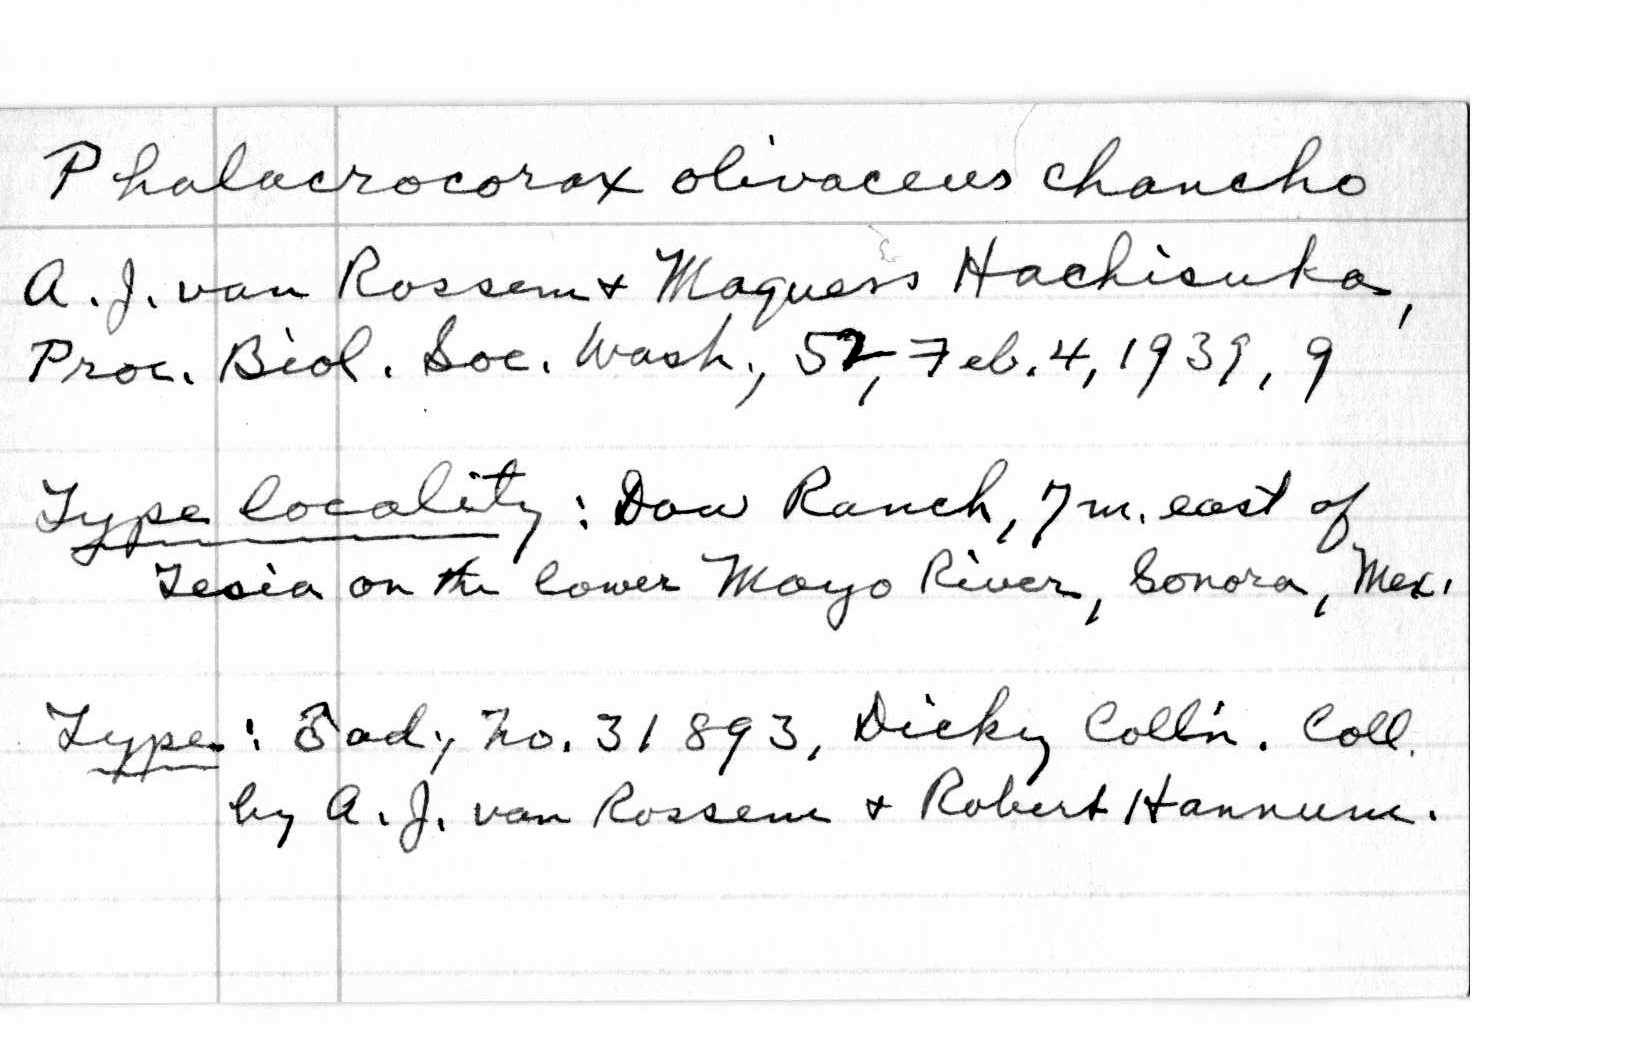 Phalacrocorax olivaceus chancho
A. J. van Rossem & Maquess Hachisuka,
Proc. Biol. Soc. Wash., 52, Feb. 4, 1939, 9
Type locality : Dow Ranch, 7 m. east of
Tesia on the lower Mayo River, Sonora, Mex.
Type : ad, No. 31893, Dicky Coll'n. Coll.
by A. J. van Rossem & Robert Hannum.